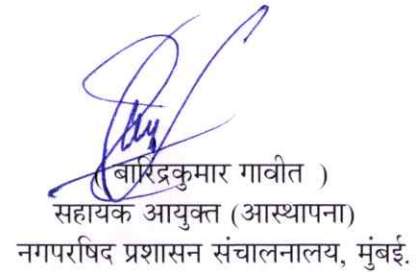 ( बारिंद्रकुमार गावीत )
सहायक आयुक्त (आस्थापना)
नगपरषिद प्रशासन संचालनालय, मुंबई.